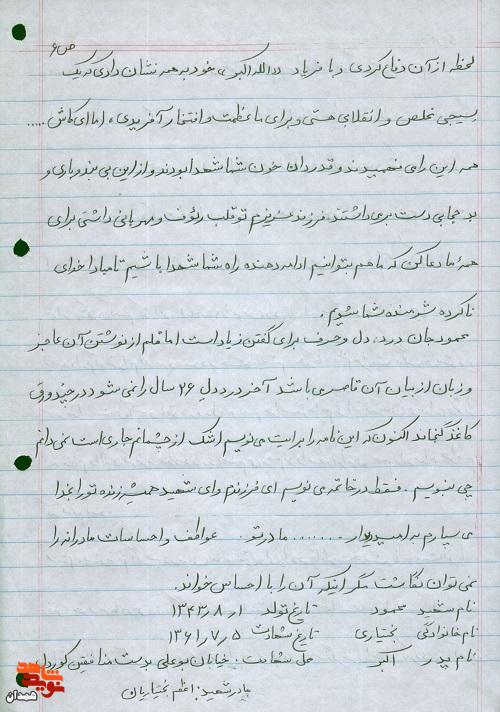 ص ۶
لحظه از آن دفاع کردی و با فریاد «الله اکبر» خود به همه نشان دادی که یک
بسیجی مخلص و انقلابی هستی و برای ما عظمت و افتخار آفریدی، اما ای کاش .....
همه این را می فهمیدند و قدردان خون شما شهدا بودند و از این بی بندوباری و
بد حجابی دست برمی داشتند. فرزند عزیزم تو قلب رئوف و مهربانی داشتی برای
همهٔ ما دعا کن که ما هم بتوانیم ادامه دهنده راه شما شهدا باشیم تا مبادا خدای
ناکرده شرمنده شما شویم.
محمود جان درد، دل و حرف برای گفتن زیاد است اما قلم از نوشتن آن عاجز
و زبان از بیان آن قاصر می باشد آخر درد دل ۲۶ سال را نمی شود در چند ورق
کاغذ گنجاند اکنون که این نامه را برایت می نویسم اشک از چشمانم جاری است نمی دانم
چی بنویسم. فقط در خاتمه می نویسم ای فرزندم و ای شهید همیشه زنده تو را بخدا
می سپارم به امید دیدار ....... مادر تو. عواطف و احساسات مادرانه را
نمی توان نگاشت مگر اینکه آن را با احساس خواند.
نام شهید محمود تاریخ تولد ۱ر۸ر۱۳۴۳
نام خانوادگی بختیاری تاریخ شهادت ۵ر۷ر۱۳۶۱
نام پدر اکبر محل شهادت: خیابان بوعلی بدست منافقین کوردل
مادر شهید: اعظم بختیاریان
شاهد
نوید
همدان